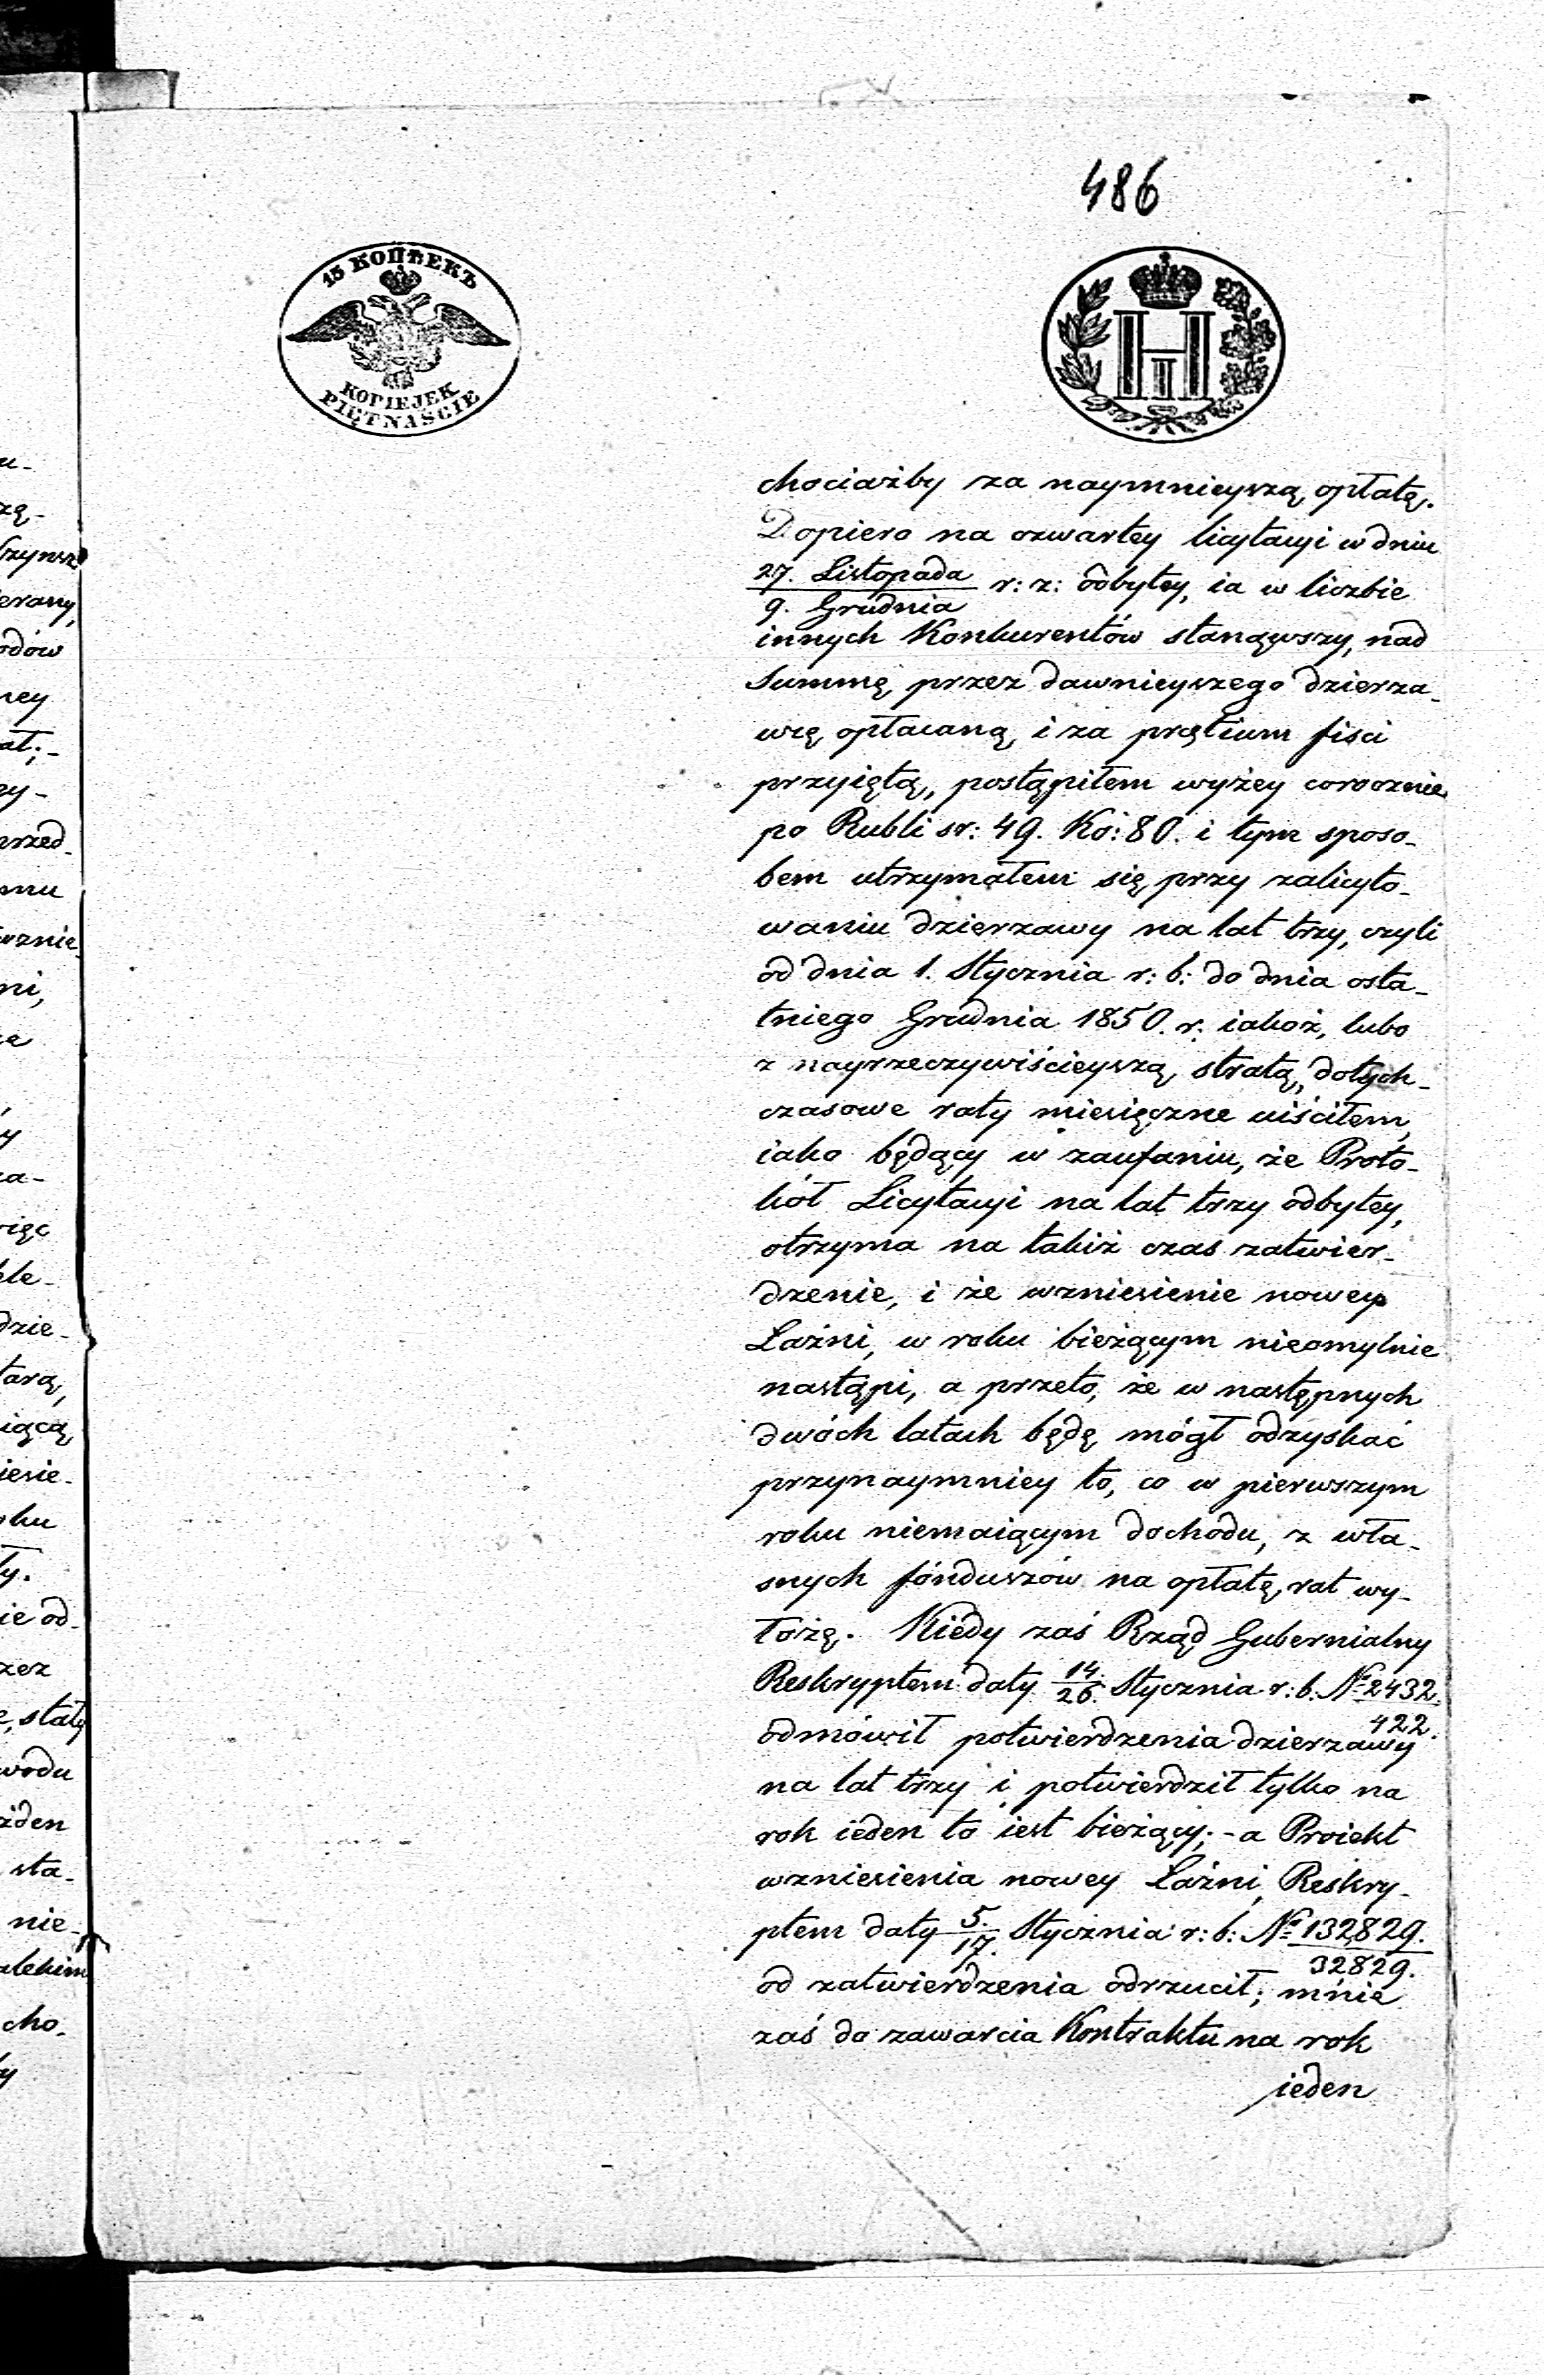 486
15 КОПѢЕКЪ
KOPIEJEK
PIĘTNAŚCIE
chociażby za naymnieyszą opłatę.
Dopiero na czwartey licytacyi w dniu
27. Listopada / 9. Grudnia r: z: odbytey, ia w liczbie
innych Konkurentów stanąwszy, nad
Summę przez dawnieyszego dzierza-
wcę opłacaną i za prętium fisci
przyiętą, postąpiłem wyżey corocznie
po Rubli sr: 49. Ko: 80. i tym sposo-
bem utrzymałem się przy zalicyto-
waniu dzierzawy na lat trzy, czyli
od dnia 1. Stycznia r: b: do dnia osta-
tniego Grudnia 1850. r. iakoż, lubo
z nayrzeczywiścieyszą stratą, dotych-
czasowe raty miesięczne uiściłem,
iako będący w zaufaniu, że Proto-
kół Licytacyi na lat trzy odbytey,
otrzyma na takiż czas zatwier-
dzenie, i że wzniesienie nowey
Łaźni, w roku bieżącym nieomylnie
nastąpi, a przeto, że w następnych
dwóch latach będę mógł odzyskać
przynaymniey to, co w pierwszym
roku niemaiącym dochodu, z wła-
snych fónduszów na opłatę rat wy-
łożę. Kiedy zaś Rząd Gubernialny
Reskryptem daty 14./26. Stycznia r: b: № 2432./422.
odmówił potwierdzenia dzierzawy
na lat trzy i potwierdził tylko na
rok ieden to iest bieżący; - a Proiekt
wzniesienia nowey Łaźni, Reskry-
ptem daty 5./17. Stycznia r: b: № 132,829./32,829.
od zatwierdzenia odrzucił; mnie
zaś do zawarcia Kontraktu na rok
ieden